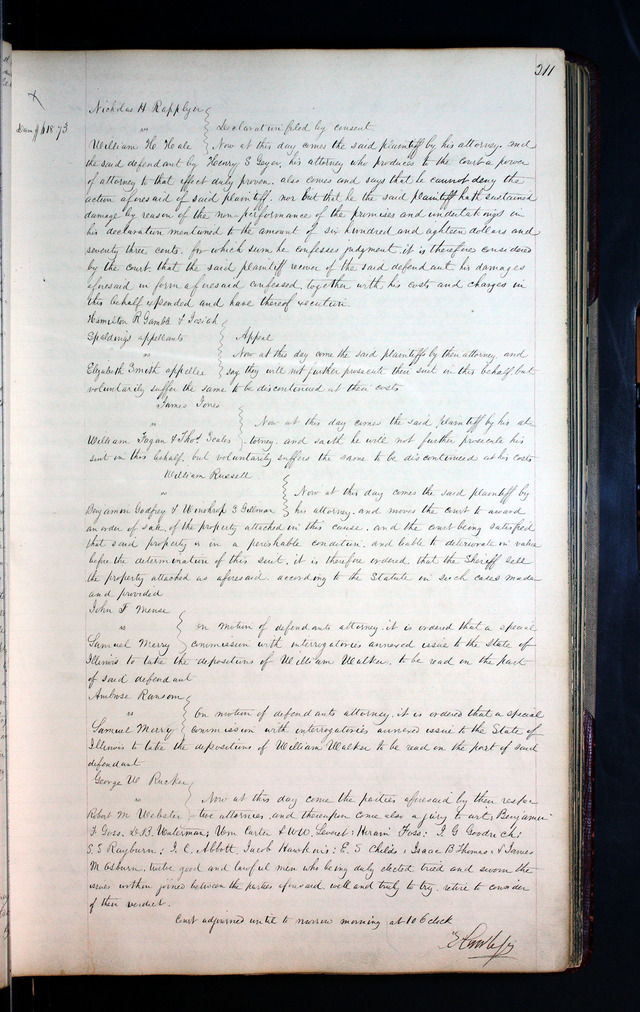 311
Nicholas H Rapplyer
vs Declaration filed by consent
William H. Heale Now at this day comes the said plaintiff by his attorney, and
the said defendant by Henry S Geyer, his attorney who produces to the court a power
of attorney to that effect duly proven, also comes and says that he cannot deny the
action aforesaid of said plaintiff, nor but that he the said plaintiff hath sustained
damage by reason of the non-performance of the promises and undertakings in
his declaration mentioned to the amount of six hundred and eighteen dollars and
seventy three cents. for which sum he confesses judgment it is therefore considered
by the court, that the said plaintiff recover of the said defendant his damages
aforesaid in form aforesaid confessed, together with his costs and charges in
this behalf expended and have thereof execution.
Hamilton R Gamble & Josiah
Spaldings appellants Appeal
vs Now at this day come the said plaintiffs by their attorney, and
Elizabeth Smith appellee say they will not further prosecute their suit in this behalf but
voluntarily suffer the same to be discontinued at their costs
James Jones
vs Now at this day comes the said plaintiff by his at
William Fagan & Thos. Scales torney, and saith he will not further prosecute his
suit in this behalf, but voluntarily suffers the same to be discontinued at his costs
William Russell
vs Now at this day comes the said plaintiff by
Benjamin Godfrey & Winthrop S Gillman his attorney, and moves the court to award
an order of sale of the property attached in this cause, and the court being satisfied
that said property is in a perishable condition, and liable to deteriorate in value
before the determination of this suit, it is therefore ordered, that the Sheriff sell
the property attached as aforesaid according to the Statute in such cases made
and provided
John F Mense
vs on motion of defendants attorney, it is ordered that a special
Samuel Merry commission with interrogatories annexed issue to the State of
Illinois to take the depositions of William Walker, to be read on the part
of said defendant
Ambrose Ransom
vs On motion of defendants attorney, it is ordered that a special
Samuel Merry commission with interrogatories annexed issue to the State of
Illinois to take the depositions of William Walker to be read on the part of said
defendant
George W Rucker
vs Now at this day come the parties aforesaid by their respec
Robert M Webster tive attornies, and thereupon come also a jury to wit, Benjamin
F Foss. D. B. Westerman; Wm Carter & Hiram Foss: J G Goodrich:
S. S. Rayburn: J. C. Abbott Jacob Hawkins: E. S Childs: Isaac B Thomas: & James
M Osburn, twelve good and lawful men who being duly elected tried and sworn the
issues within joined between the parties aforesaid well and truly to try, retire to consider
of their verdict.
Court adjourned until to morrow morning at 10 Oclock